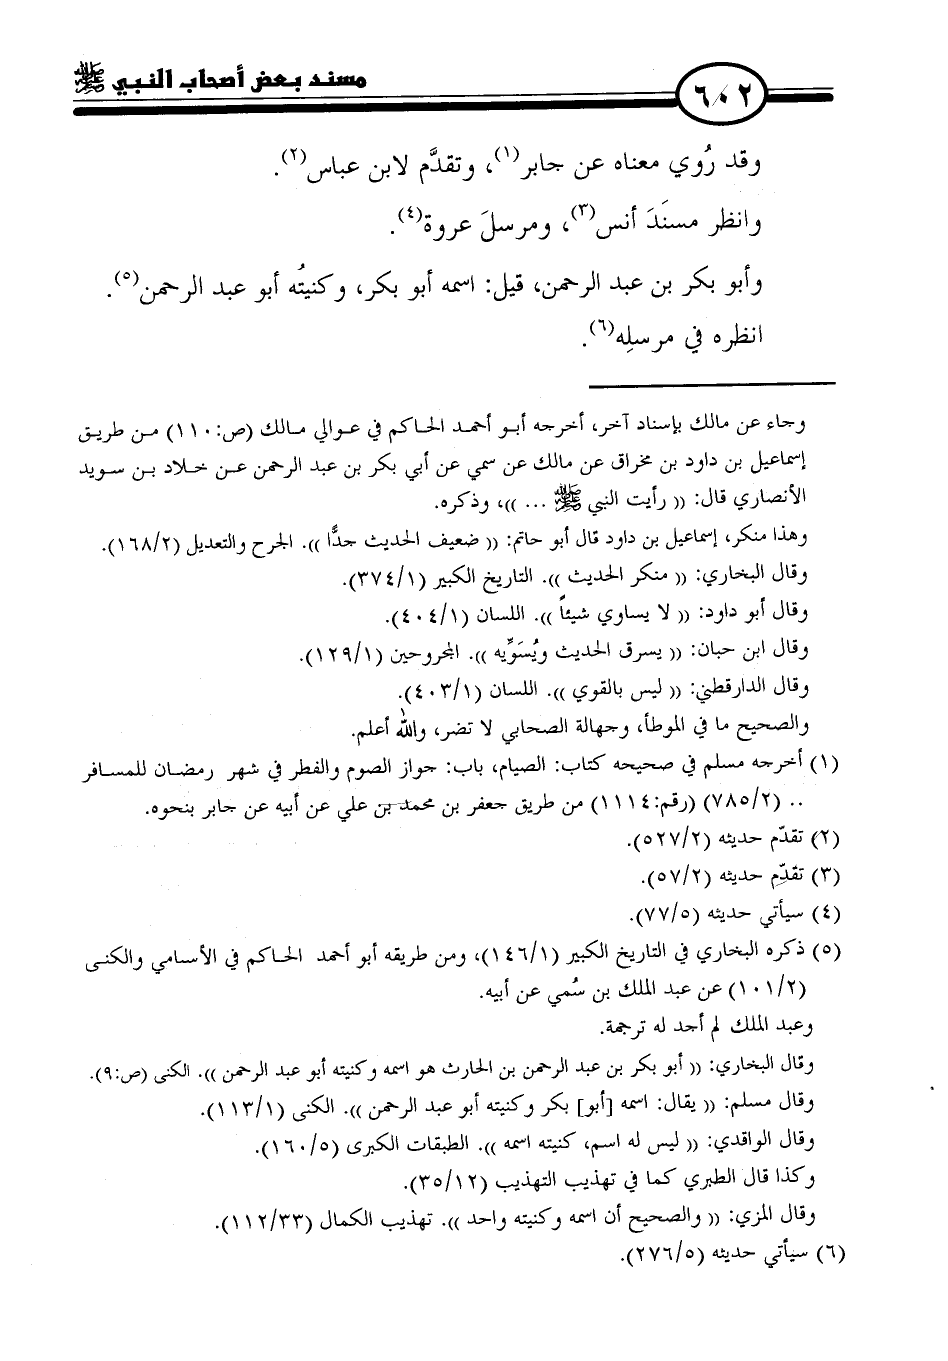 ٦٠٢
مسند بعض أصحاب النبي ﷺ
وقد رُوي معناه عن جابر(١)، وتقدَّم لابن عباس(٢).
وانظر مسنَدَ أنس(٣)، ومرسلَ عروة(٤).
وأبو بكر بن عبد الرحمن، قيل: اسمه أبو بكر، وكنيتُه أبو عبد الرحمن(٥).
انظره في مرسلِه(٦).
وجاء عن مالك بإسناد آخر، أخرجه أبو أحمد الحاكم في عوالي مالك (ص:١١٠) من طريق
إسماعيل بن داود بن مخراق عن مالك عن سمي عن أبي بكر بن عبد الرحمن عن خلاد بن سويد
الأنصاري قال: (( رأيت النبي ﷺ ... ))، وذكره.
وهذا منكر، إسماعيل بن داود قال أبو حاتم: (( ضعيف الحديث جدًّا )). الجرح والتعديل (١٦٨/٢).
وقال البخاري: (( منكر الحديث )). التاريخ الكبير (٣٧٤/١).
وقال أبو داود: (( لا يساوي شيئاً )). اللسان (٤٠٤/١).
وقال ابن حبان: (( يسرق الحديث ويُسَوِّيه )). المجروحين (١٢٩/١).
وقال الدارقطني: (( ليس بالقوي )). اللسان (٤٠٣/١).
والصحيح ما في الموطأ، وجهالة الصحابي لا تضر، والله أعلم.
(١) أخرجه مسلم في صحيحه كتاب: الصيام، باب: جواز الصوم والفطر في شهر رمضان للمسافر
.. (٧٨٥/٢) (رقم:١١١٤) من طريق جعفر بن محمد بن علي عن أبيه عن جابر بنحوه.
(٢) تقدّم حديثه (٥٢٧/٢).
(٣) تقدّم حديثه (٥٧/٢).
(٤) سيأتي حديثه (٧٧/٥).
(٥) ذكره البخاري في التاريخ الكبير (١٤٦/١)، ومن طريقه أبو أحمد الحاكم في الأسامي والكنى
(١٠١/٢) عن عبد الملك بن سُمي عن أبيه.
وعبد الملك لم أجد له ترجمة.
وقال البخاري: (( أبو بكر بن عبد الرحمن بن الحارث هو اسمه وكنيته أبو عبد الرحمن )). الكنى (ص:٩).
وقال مسلم: (( يقال: اسمه [أبو] بكر وكنيته أبو عبد الرحمن )). الكنى (١١٣/١).
وقال الواقدي: (( ليس له اسم، كنيته اسمه )). الطبقات الكبرى (١٦٠/٥).
وكذا قال الطبري كما في تهذيب التهذيب (٣٥/١٢).
وقال المزي: (( والصحيح أن اسمه وكنيته واحد )). تهذيب الكمال (١١٢/٣٣).
(٦) سيأتي حديثه (٢٧٦/٥).